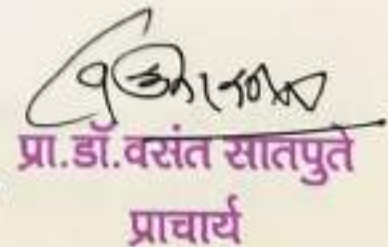 प्रा.डॉ.वसंत सातपुते
प्राचार्य